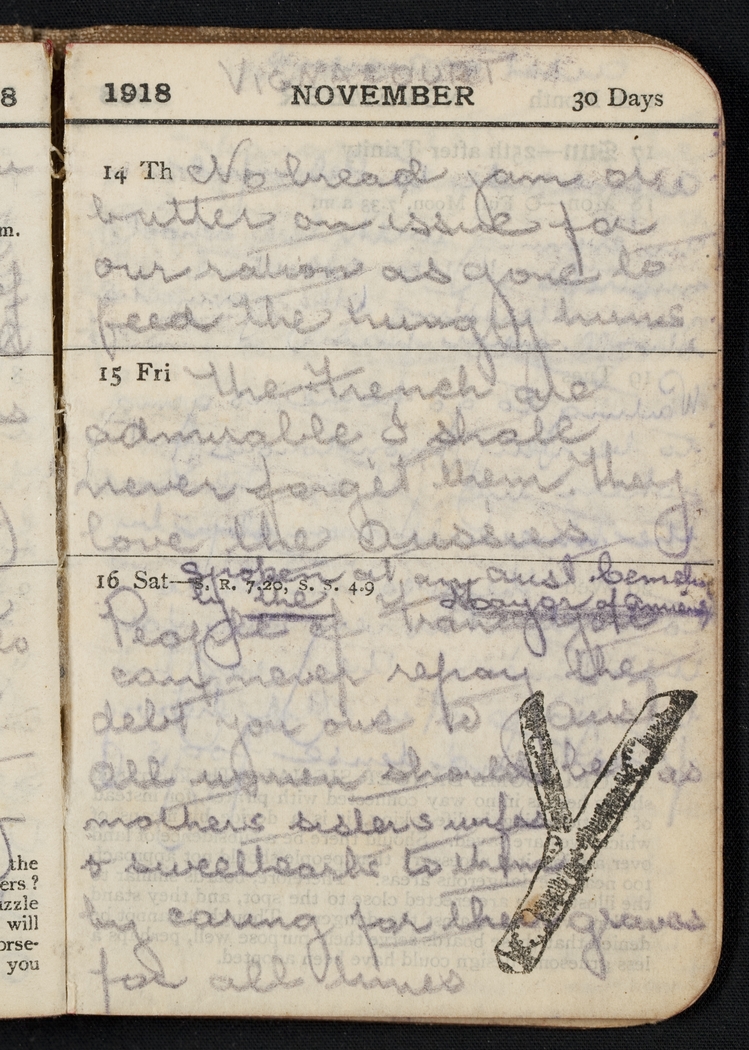 1918 NOVEMBER 30 Days
14 Th No bread jam or
butter on issue for
our ration as gone to
feed the hungry huns
15 Fri The French are
admirable I shall
never forget them. They
love the Aussies
16 Sat—S. R. 7.20, S. S. 4.9
spoken at an aust
by the Mayor of amiens
People of France you
can never repay the
debt you owe to aust
all women should be as
mothers sisters
& sweethearts to them
by caring for their graves
for all times
8
m.
the
ers ?
zzle
will
orse-
you